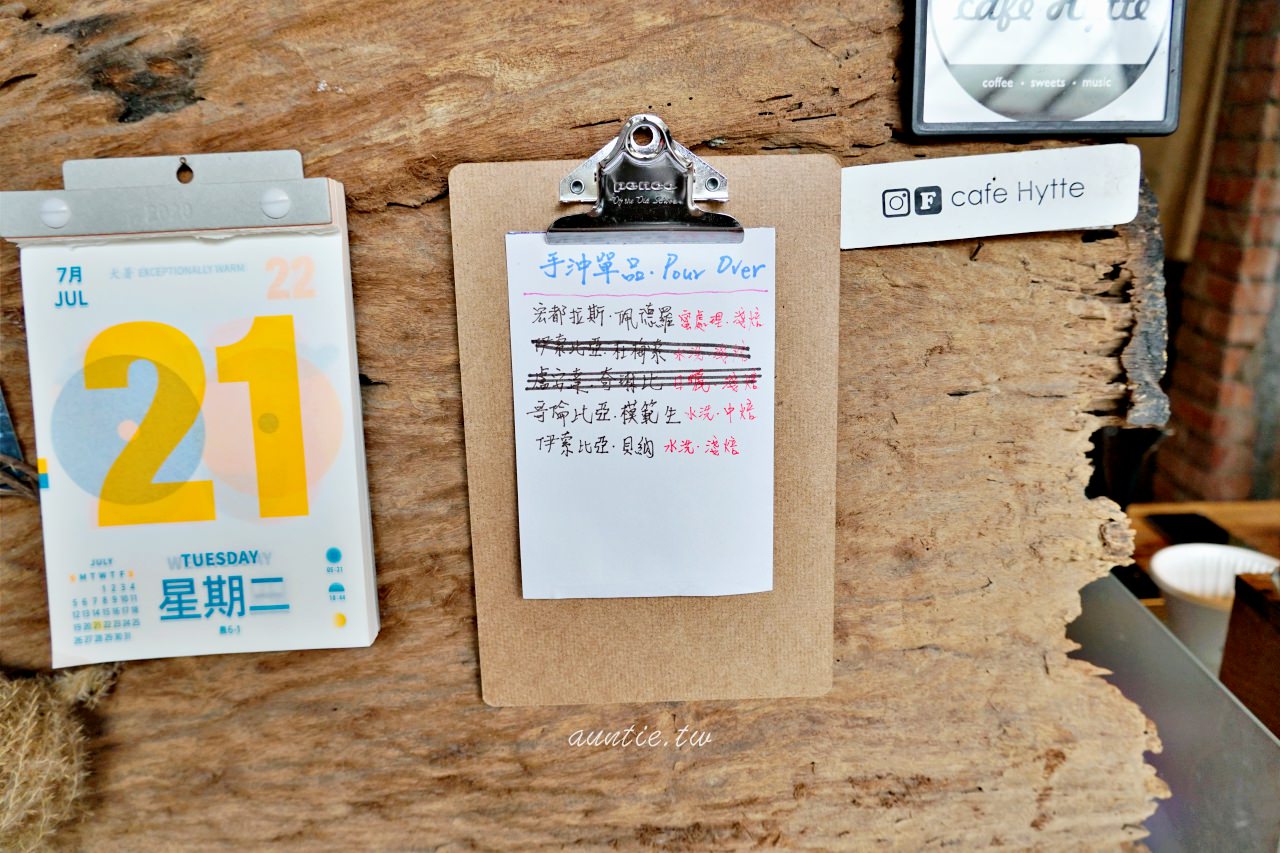 café Hytte
coffee • sweets • music
cafe Hytte
7月
JUL
大暑 EXCEPTIONALLY WARM
22
21
TUESDAY
星期二
農6-1
JULY
S M T W T F S
1 2 3 4
5 6 7 8 9 10 11
12 13 14 15 16 17 18
19 20 21 22 23 24 25
26 27 28 29 30 31
05-21
18-44
手沖單品·Pour Over
宏都拉斯·佩德羅 蜜處理·淺焙
伊索比亞·杜梅索 水洗·淺焙
盧安達·奇琳比 日曬·淺焙
哥倫比亞·模範生 水洗·中焙
伊索比亞·貝納 水洗·淺焙
auntie.tw